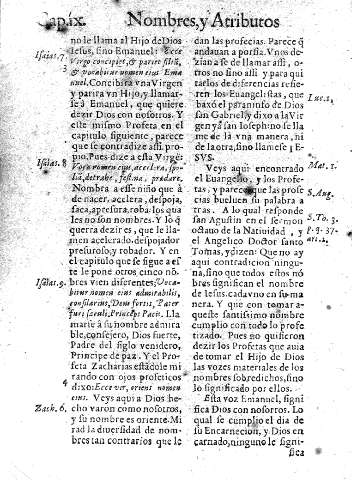 Cap.ix. Nombres, y Atributos
no le llama al Hijo de Dios
Iesus, sino Emanuel: Ecce
Isaiæ. 7. Virgo concipiet, & pariet filiũ,
3 & vocabitur nomen eius Ema
nuel. Concibira vna Virgen
y parira vn Hijo, y llamar-
se à Emanuel, que quiere
dezir Dios con nosotros. Y
este mismo Profeta en el
capitulo siguiente, parece
que se contradize assi pro-
pio. Pues dize a esta Virgẽ:
Isaias. 8 Voca nomen eius, accelera, spo
lia, detrahe, festina, prædare,
Nombra a esse niño que à
de nacer, acelera, despoja,
saca, apresura, roba, los qua
les no son nombres. Y lo q̃
querra dezir es, que le lla-
men acelerado, despojador
presuroso, y robador. Y en
el capitulo que se sigue a es
te le pone otros cinco nõ-
Isaiæ. 9. bres vien diferentes: Voca-
bitur nomen eius admirabilis,
consiliarius, Deus fortis, Pater
futuri sæculi, Princeps Pacis. Lla
marse à su nombre admira
ble, consejero, Dios fuerte,
Padre del siglo venidero,
Principe de paz. Y el Pro
feta Zacharias estãdole mi
rando con ojos profeticos
4 dixo: Ecce vir, oriens nomen
eius. Veys aqui a Dios he-
Zach. 6. cho varon como nosotros,
y su nombre es oriente. Mi
rad la diuersidad de nom-
bres tan contrarios que le
dan las profecias. Parece q̃
andauan a porfia. Vnos de-
zian a se de llamar assi, o-
tros no sino assi, y para qui
tarlos de diferencias refie-
ren los Euangelistas, que
Luc. 1. baxò el paraninfo de Dios
san Gabriel, y dixo a la Vir-
gen y a san Ioseph no se lla
me de la vna manera, ni
de la otra, sino llamese IE-
SVS.
Veys aqui encontrado
Mat. 1. el Euangelio, y los Profe-
tas, y parece que las profe
S. Aug. cias bueluen su palabra a
tras. A lo qual responde
san Agustin en el sermon
S. To. 3. octauo de la Natiuidad, y
p. q. 37. el Angelico Doctor santo
art. 2. Tomas, y dizen: Que no ay
aqui contradicion ningu-
na, sino que todos estos nõ
bres significan el nombre
de Iesus, cada vno en su ma
nera. Y que con tomar a-
queste santissimo nombre
cumplio con todo lo profe
tizado. Pues no quisieron
dezir los Profetas que auia
de tomar el Hijo de Dios
las vozes materiales de los
nombres sobredichos, sino
lo significado por ellos.
Esta voz Emanuel, signi
fica Dios con nosotros. Lo
qual se cumplio el dia de
su Encarnacion, y Dios en
carnado, ninguno le signi-
fica